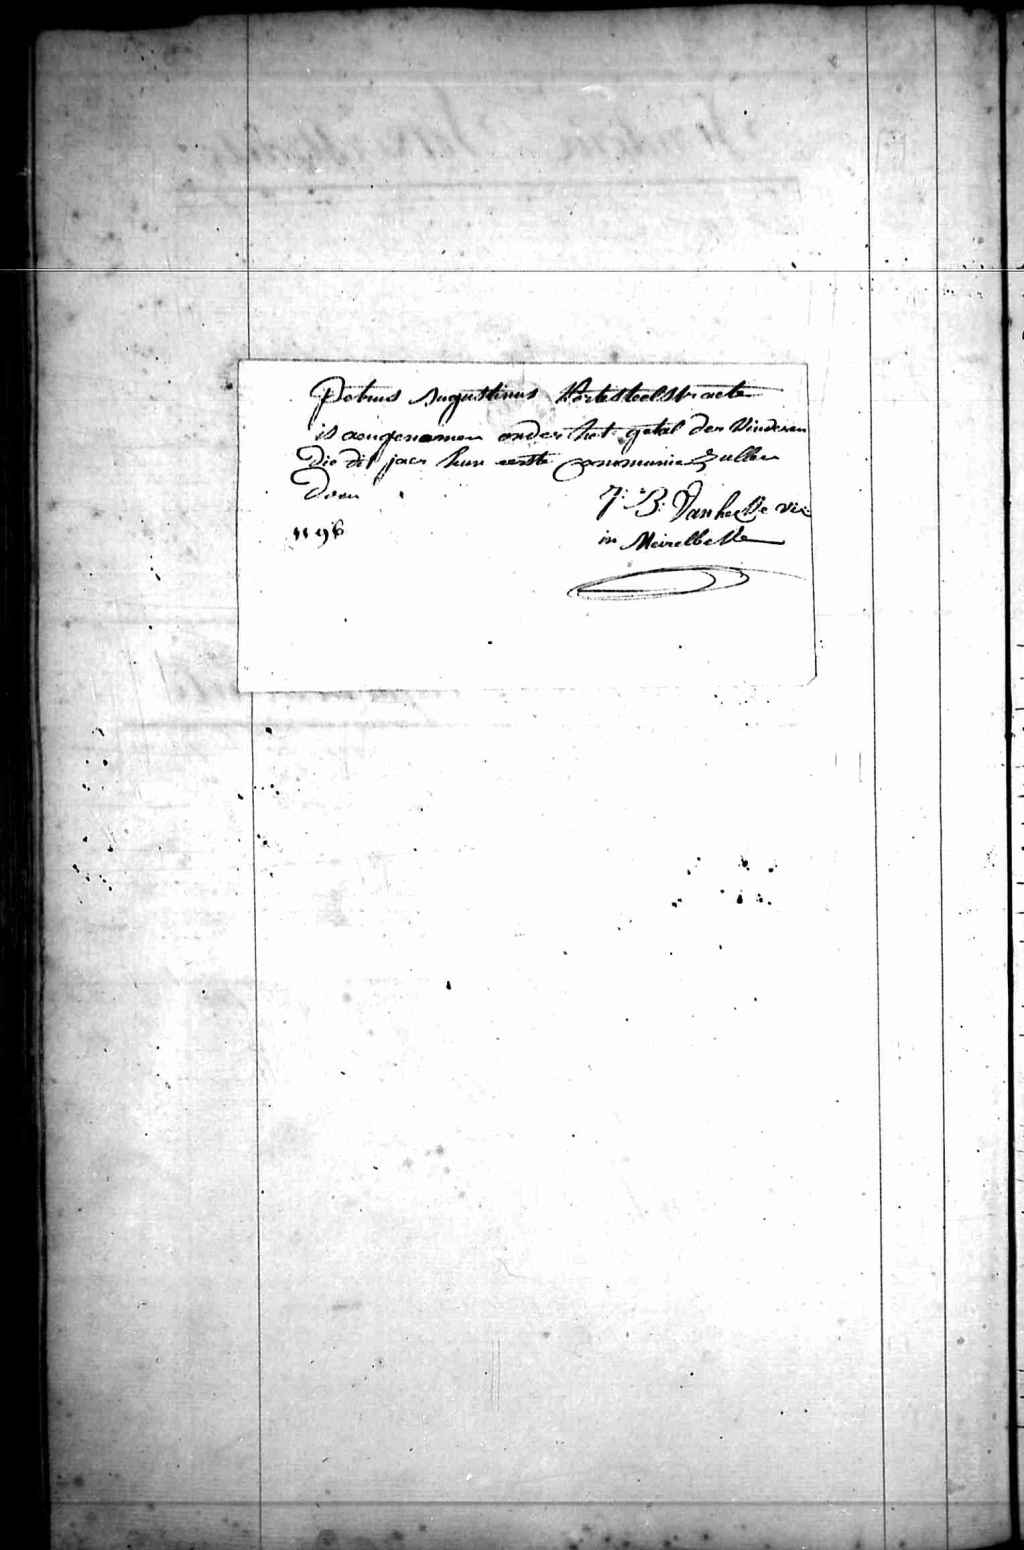 Petrus Augustinus
is aengenomen onder het getal der Kinderen
die dit jaer hun eerste Communie Zullen
doen
J: B: Vanhecke vic:
1796
in Meirelbeke